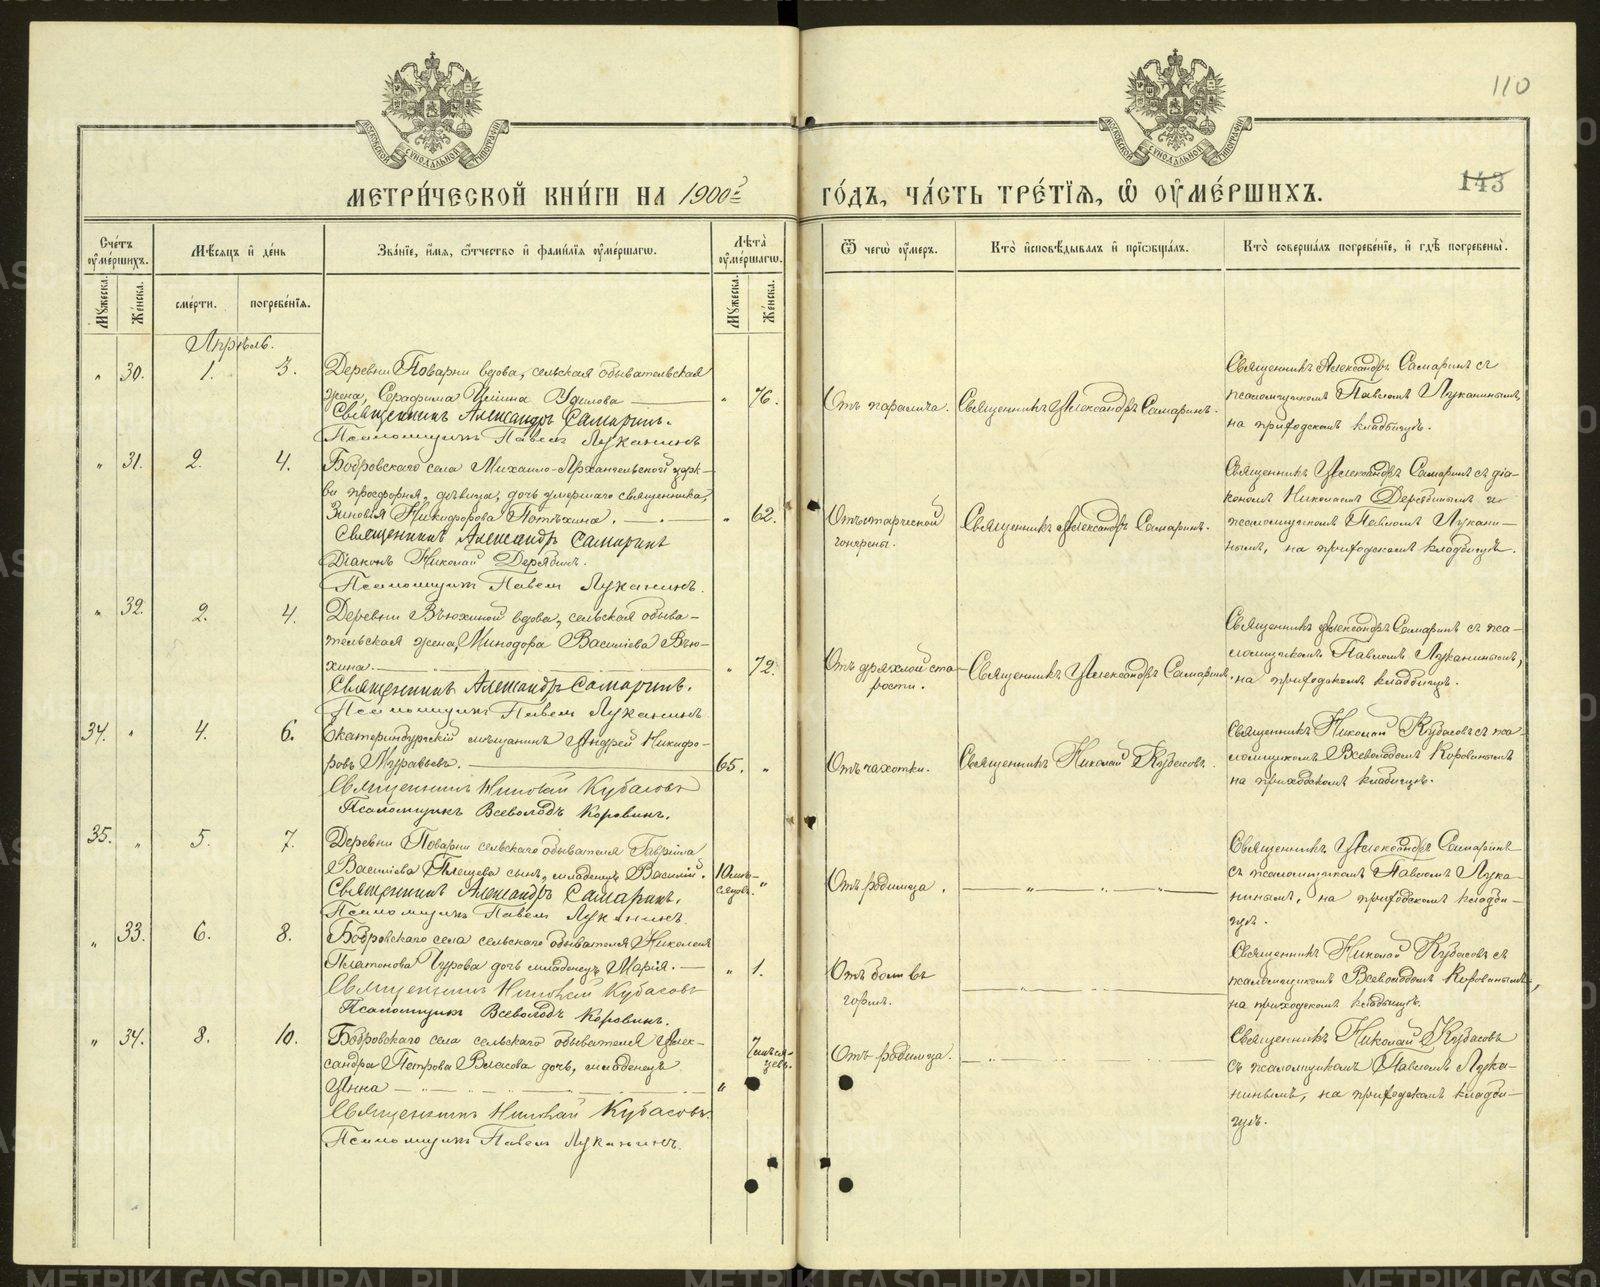 110
МОСКОВСКОЙ СѴНОДАЛЬНОЙ ТИПОГРАФІИ
МОСКОВСКОЙ СѴНОДАЛЬНОЙ ТИПОГРАФІИ
143
МЕТРИ́ЧЕСКОЙ КНИ́ГИ НА 1900й ГО́ДЪ, ЧА́СТЬ ТРЕ́ТІѦ, Ѡ҆ ОУ҆МЕ́РШИХЪ.
Счéтъ оу҆мéршихъ.
Мѣ́сѧцъ и҆ дéнь
Звáніе, и҆́мѧ, ѻ҆́тчество и҆ фамѝліѧ оу҆мéршагѡ.
Лѣ́та оу҆мéршагѡ.
Ѿ чегѡ̀ оу҆́меръ.
Ктò и҆сповѣ́дывалъ и҆ прїѡбщáлъ.
Ктò совершáлъ погребéніе, и҆ гдѣ̀ погребены̀.
Мꙋ́жеска.
Жéнска.
смéрти.
погребéніѧ.
Мꙋ́жеска.
Жéнска.
Апрѣль.
„ 30. 1. 3.
Деревни Поварни вдова, сельская обывательская
жена, Серафима
Священникъ Александръ Самаринъ.
Псаломщикъ Павелъ Луканинъ
„ 76.
Отъ паралича.
Священникъ Александръ Самаринъ.
Священникъ Александръ Самаринъ съ
псаломщикомъ Павломъ Луканинымъ,
на приходскомъ кладбищѣ.
„ 31. 2. 4.
Бобровскаго села Михаило-Архангельской церк-
ви просфорня, дѣвица, дочь умершаго священника,
Зиновія Никифорова Потѣхина.
Священникъ Александръ Самаринъ
Діаконъ Николай Дерябинъ.
Псаломщикъ Павелъ Луканинъ.
„ 62.
Отъ старческой
гангрены.
Священникъ Александръ Самаринъ.
Священникъ Александръ Самаринъ съ діа-
кономъ Николаемъ Дерябинымъ и
псаломщикомъ Павломъ Лукани-
нымъ, на приходскомъ кладбищѣ.
„ 32. 2. 4.
Деревни Вьюхиной вдова, сельская обыва-
тельская жена, Минодора Васильева Вью-
хина.
Священникъ Александръ Самаринъ.
Псаломщикъ Павелъ Луканинъ.
„ 72.
Отъ дряхлой ста-
рости.
Священникъ Александръ Самаринъ.
Священникъ Александръ Самаринъ съ пса-
ломщикомъ Павломъ Луканинымъ,
на приходскомъ кладбищѣ.
34. „ 4. 6.
Екатеринбургскій мѣщанинъ Андрей Никифо-
ровъ Муравьевъ.
Священникъ Николай Кубасовъ
Псаломщикъ Всеволодъ Коровинъ.
65. „
Отъ чахотки.
Священникъ Николай Кубасовъ.
Священникъ Николай Кубасовъ съ пса-
ломщикомъ Всеволодомъ Коровинымъ
на приходскомъ кладбищѣ.
35. „ 5. 7.
Деревни Поварни сельскаго обывателя Гавріила
Васильева Плещева сынъ, младенецъ Василій.
Священникъ Александръ Самаринъ.
Псаломщикъ Павелъ Луканинъ.
10 мѣ-
сяцовъ. „
Отъ родимца.
Священникъ Александръ Самаринъ
съ псаломщикомъ Павломъ Лука-
нинымъ, на приходскомъ кладби-
щѣ.
„ 33. 6. 8.
Бобровскаго села сельскаго обывателя Николая
Платонова Чурова дочь младенецъ Марія.
Священникъ Николай Кубасовъ
Псаломщикъ Всеволодъ Коровинъ.
„ 1.
Отъ боли въ
горлѣ.
Священникъ Николай Кубасовъ съ
псаломщикомъ Всеволодомъ Коровинымъ,
на приходскомъ кладбищѣ.
„ 34. 8. 10.
Бобровскаго села сельскаго обывателя Алек-
сандра Петрова Власова дочь, младенецъ
Анна
Священникъ Николай Кубасовъ.
Псаломщикъ Павелъ Луканинъ.
„ 7 мѣся-
цевъ.
Отъ родимца.
Священникъ Николай Кубасовъ
съ псаломщикомъ Павломъ Лука-
нинымъ, на приходскомъ кладби-
щѣ.
METRIKI.GASO-URAL.RU